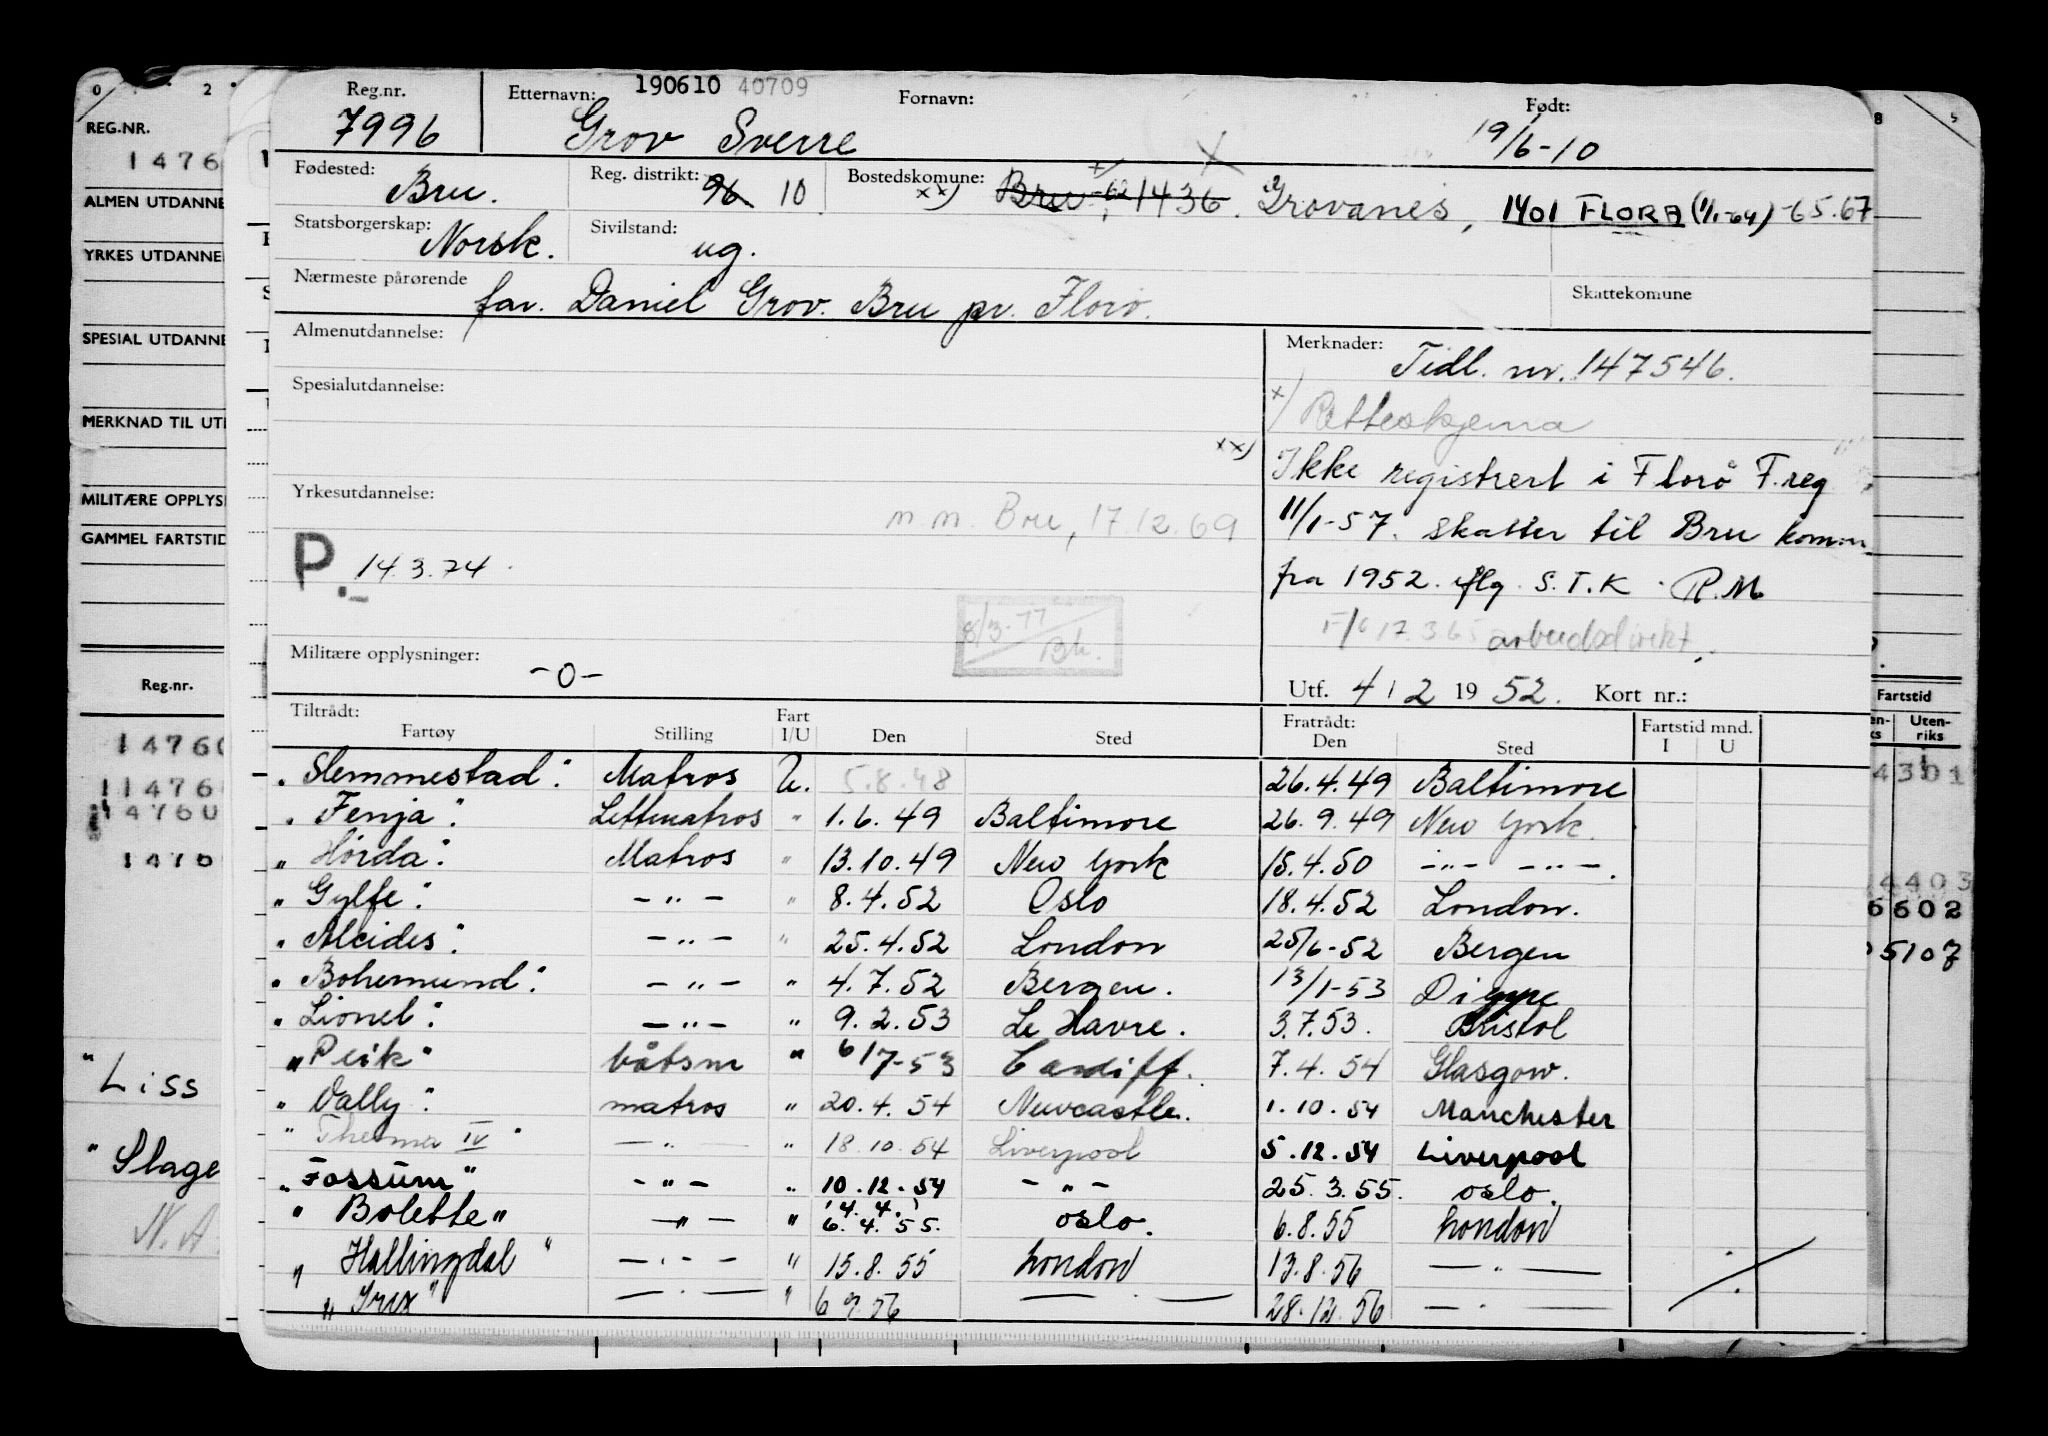 190610 40709
Reg.nr. Etternavn: Fornavn: Født:
7996 Grov Sverre 19/6-10
Fødested: Reg. distrikt: Bostedskomune:
Bru. 96 10 xx) Bru 1436. Grovanes, 1401 FLORA (1/1-64) -65.67
Statsborgerskap: Sivilstand:
Norsk. ug.
Nærmeste pårørende Skattekomune
far. Daniel Grov. Bru pr. Florø.
Almenutdannelse: Merknader:
Tidl. nr. 147546.
Spesialutdannelse:
x) Retteskjema
xx) Ikke registrert i Florø F.reg
Yrkesutdannelse:
m.m. Bru, 17.12.69
11/1-57. skatter til Bru komm
P. 14.3.74.
fra 1952. iflg. S.T.K. R.M
8/3-77 Bh.
17.3.65 arbeidsdirekt.
Militære opplysninger:
-0-
Utf. 4/2 1952. Kort nr.:
Tiltrådt: Fratrådt: Fartstid mnd.
Fartøy Stilling Fart I/U Den Sted Den Sted I U
" Slemmestad" Matros U. 5.8.48 26.4.49 Baltimore
" Fenja" Lettmatros " 1.6.49 Baltimore 26.9.49 New York.
" Hørda" Matros " 13.10.49 New York 15.4.50 -"- -"-.
" Gylfe" -"- " 8.4.52 Oslo 18.4.52 London.
" Alcides" -"- " 25.4.52 London 25/6-52 Bergen
" Bohemund" -"- " 4.7.52 Bergen. 13/1-53 Dieppe
" Lionel" -"- " 9.2.53 Le Havre. 3.7.53. Bristol
" Peik" båtsm " 6/7-53 Cardiff. 7.4.54 Glasgow.
" Vally" matros " 20.4.54 Newcastle. 1.10.54 Manchester
" Therma IV" -"- " 18.10.54 Liverpool 5.12.54 Liverpool
" Fossum" -"- " 10.12.54 -"- 25.3.55. oslo.
" Bolette" -"- " 6.4.55. oslo. 6.8.55 London
" Hallingdal" -"- " 15.8.55 London 13.8.56 -"-
" Irix" -"- " 6 9.56 -"- 28.12.56 -"-
0 2
REG.NR.
1476
ALMEN UTDANNE
YRKES UTDANNE
SPESIAL UTDANNE
MERKNAD TIL UT
MILITÆRE OPPLYS
GAMMEL FARTSTID
Reg.nr.
14760
114760
14760
1476
"Liss
"Slage
N.A.
8 5
Fartstid
Uten-riks
4301
4403
6602
5107